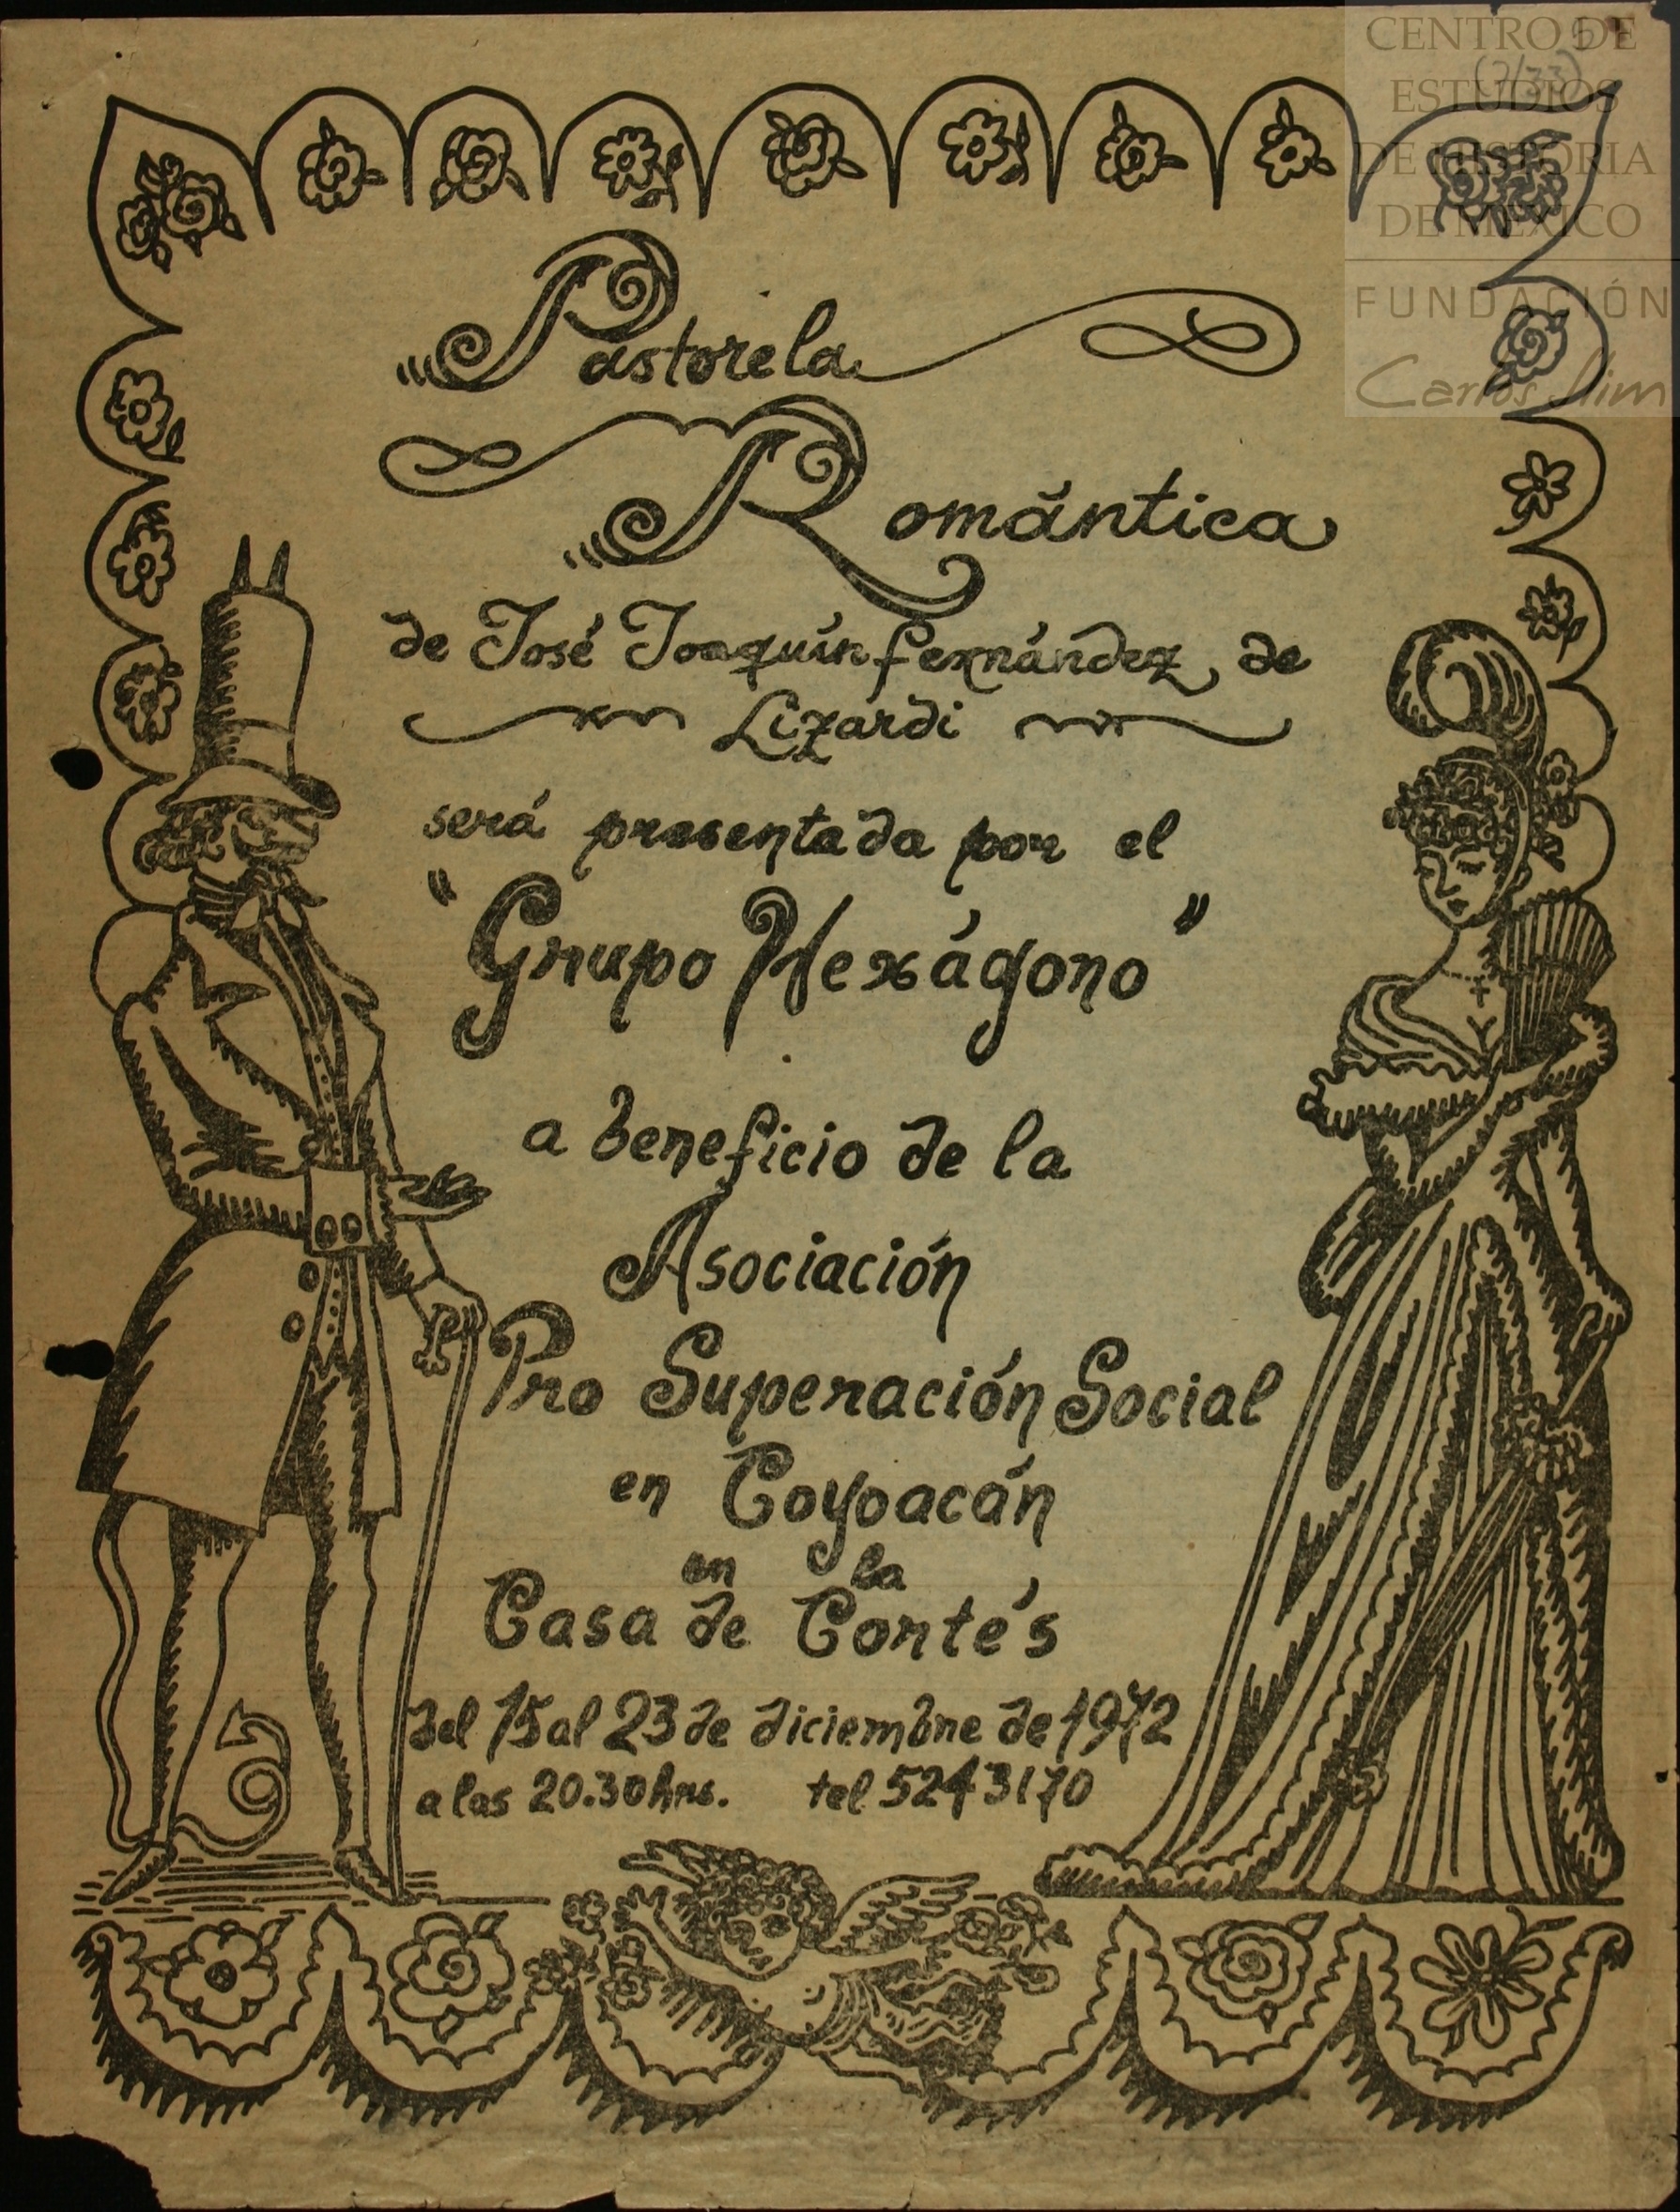 CENTRO DE
ESTUDIOS
DE HISTORIA
DE MÉXICO
FUNDACIÓN
Carlos Slim
(2/33)
Pastorela
Romántica
de José Joaquín fernández de
Lizardi
será presentada por el
"Grupo Hexágono"
a beneficio de la
Asociación
Pro Superación Social
en Coyoacán
en la
Casa de Cortés
del 15 al 23 de diciembre de 1972
a las 20.30 hrs. tel 5243170